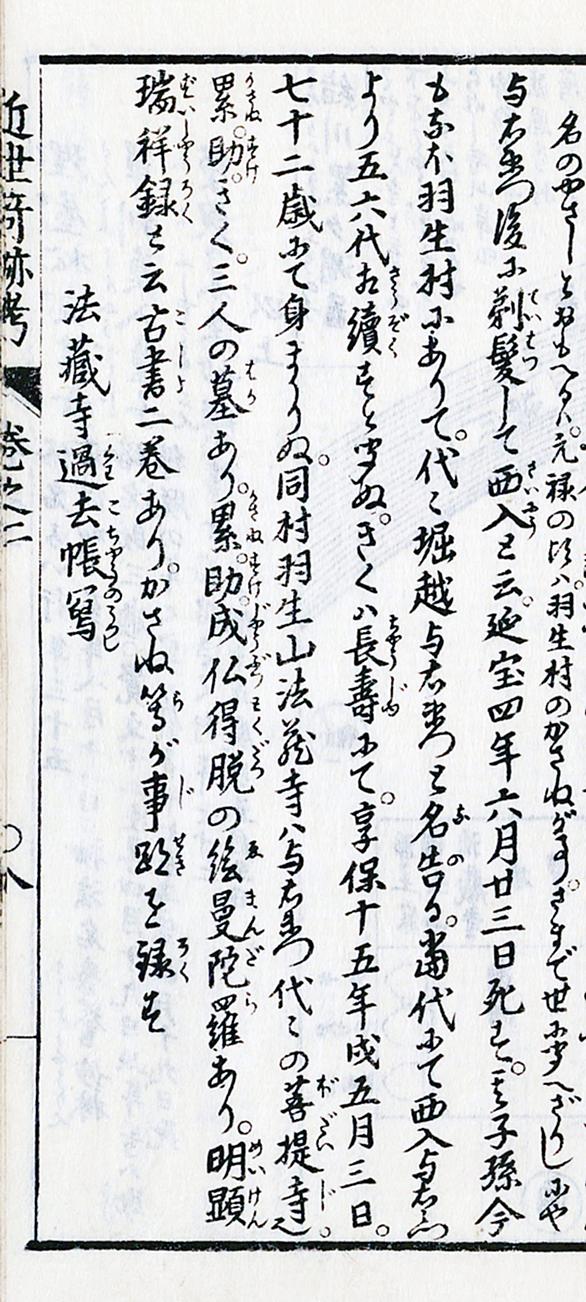 名のやさしとおもへるハ元禄の頃ハ羽生村のかさねが事さまで世に聞へざりしにや
与右衛門後に剃髪して西入と云延宝四年六月廿三日死す其子孫今
もなほ羽生村にありて代々堀越与右衛門と名告る当代にて西入与右衛門
より五六代相續すと聞ぬきくハ長壽にて享保十五年戌五月三日
七十二歳にて身まかりぬ同村羽生山法蔵寺ハ与右衛門代々の菩提寺也
累助きく三人の墓あり累助成仏得脱の絵曼陀羅あり明顕
瑞祥録と云古書二巻ありかさね等が事跡を録す
法藏寺過去帳寫
近世奇跡考 巻之二 〇八